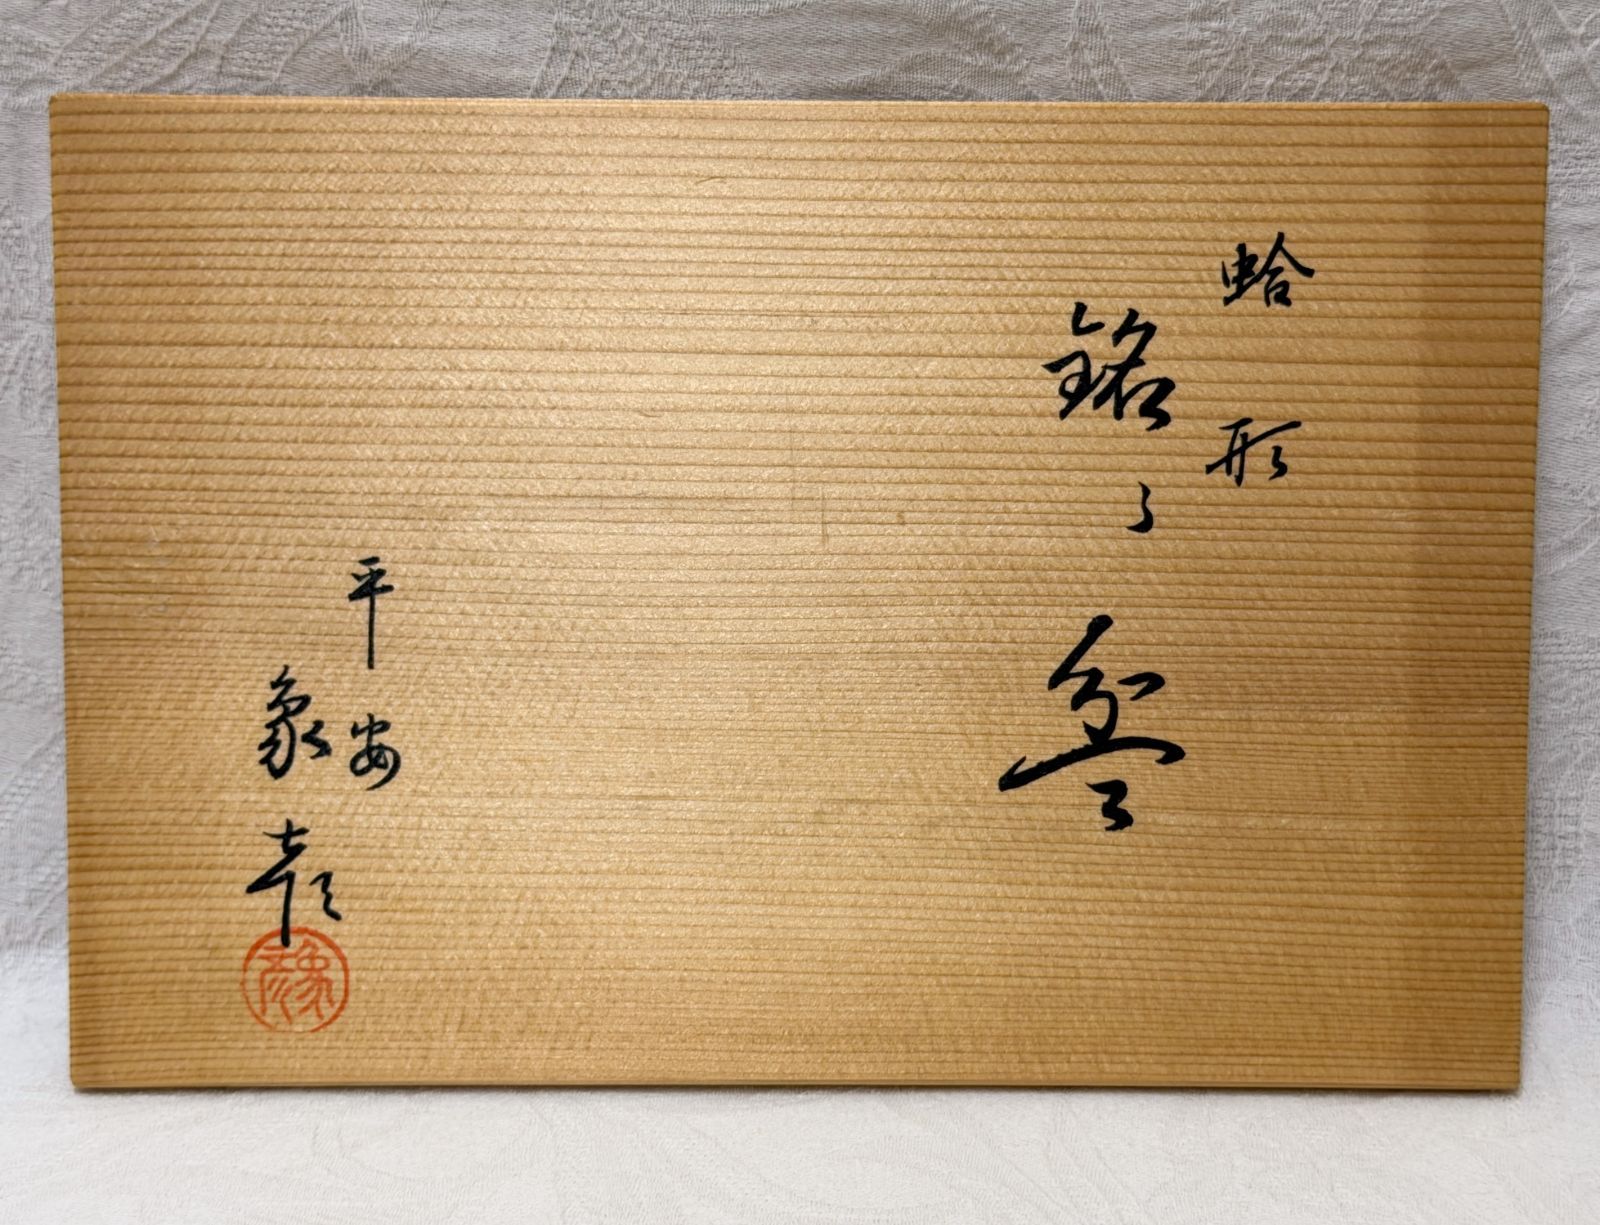 蛤形
銘々盆
平安
象彦
象彦